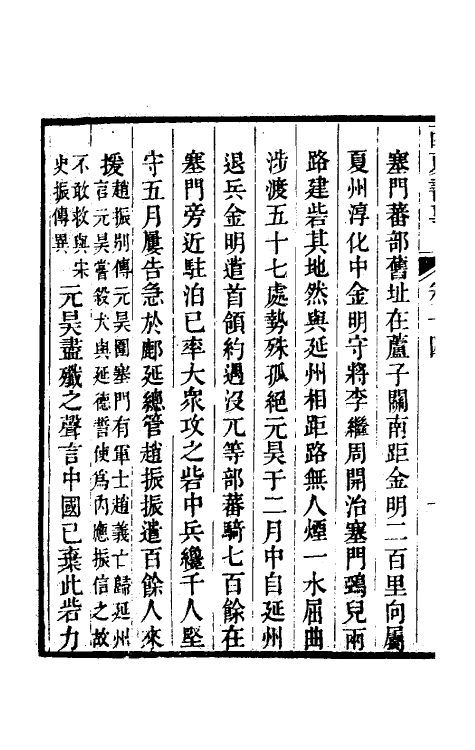 塞門蕃部舊址在蘆子關南距金明二百里向屬
夏州淳化中金明守將李繼周開治塞門鵶兒兩
路建砦其地然與延州相距路無人煙一水屈曲
涉渡五十七處勢殊孤絕元昊于二月中自延州
退兵金明遣首領約遇沒兀等部蕃騎七百餘在
塞門旁近駐泊已率大衆攻之砦中兵纔千人堅
守五月屢告急於鄜延總管趙振振遣百餘人來
援趙振別傳元昊圍塞門有軍士趙義亡歸延州
言元昊嘗殺犬與延德誓使爲內應振信之故
不敢救與宋
史振傳異元昊盡殲之聲言中國已棄此砦力